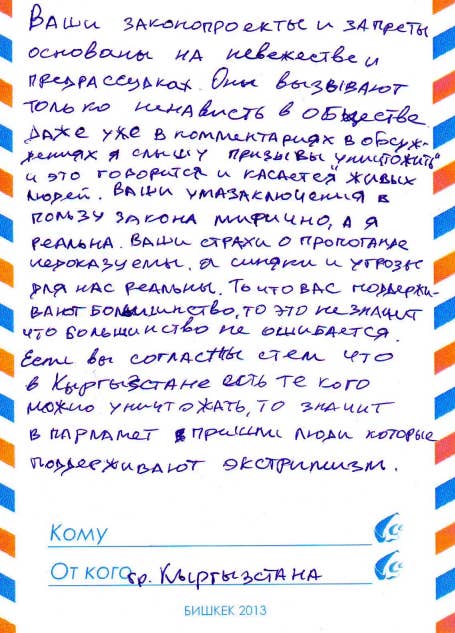 Ваши законопроекты и запреты
основаны на невежестве и
предрассудках. Они вызывают
только ненависть в обществе.
Даже уже в комментариях в обсуж-
дениях я слышу призывы "уничтожить"
и это говорится и касается живых
людей. Ваши умазаключения в
пользу закона мифично, а я
реальна. Ваши страхи о пропоганде
недоказуемы, а синяки и угрозы
для нас реальны. То что вас поддержи-
вают большинство, то это не значит
что большинство не ошибается.
Если вы согласны с тем что
в Кыргызстане есть те кого
можно уничтожать, то значит
в парламет пришли люди которые
поддерживают экстримизм.
Кому
От кого гр. Кыргызстана
БИШКЕК 2013